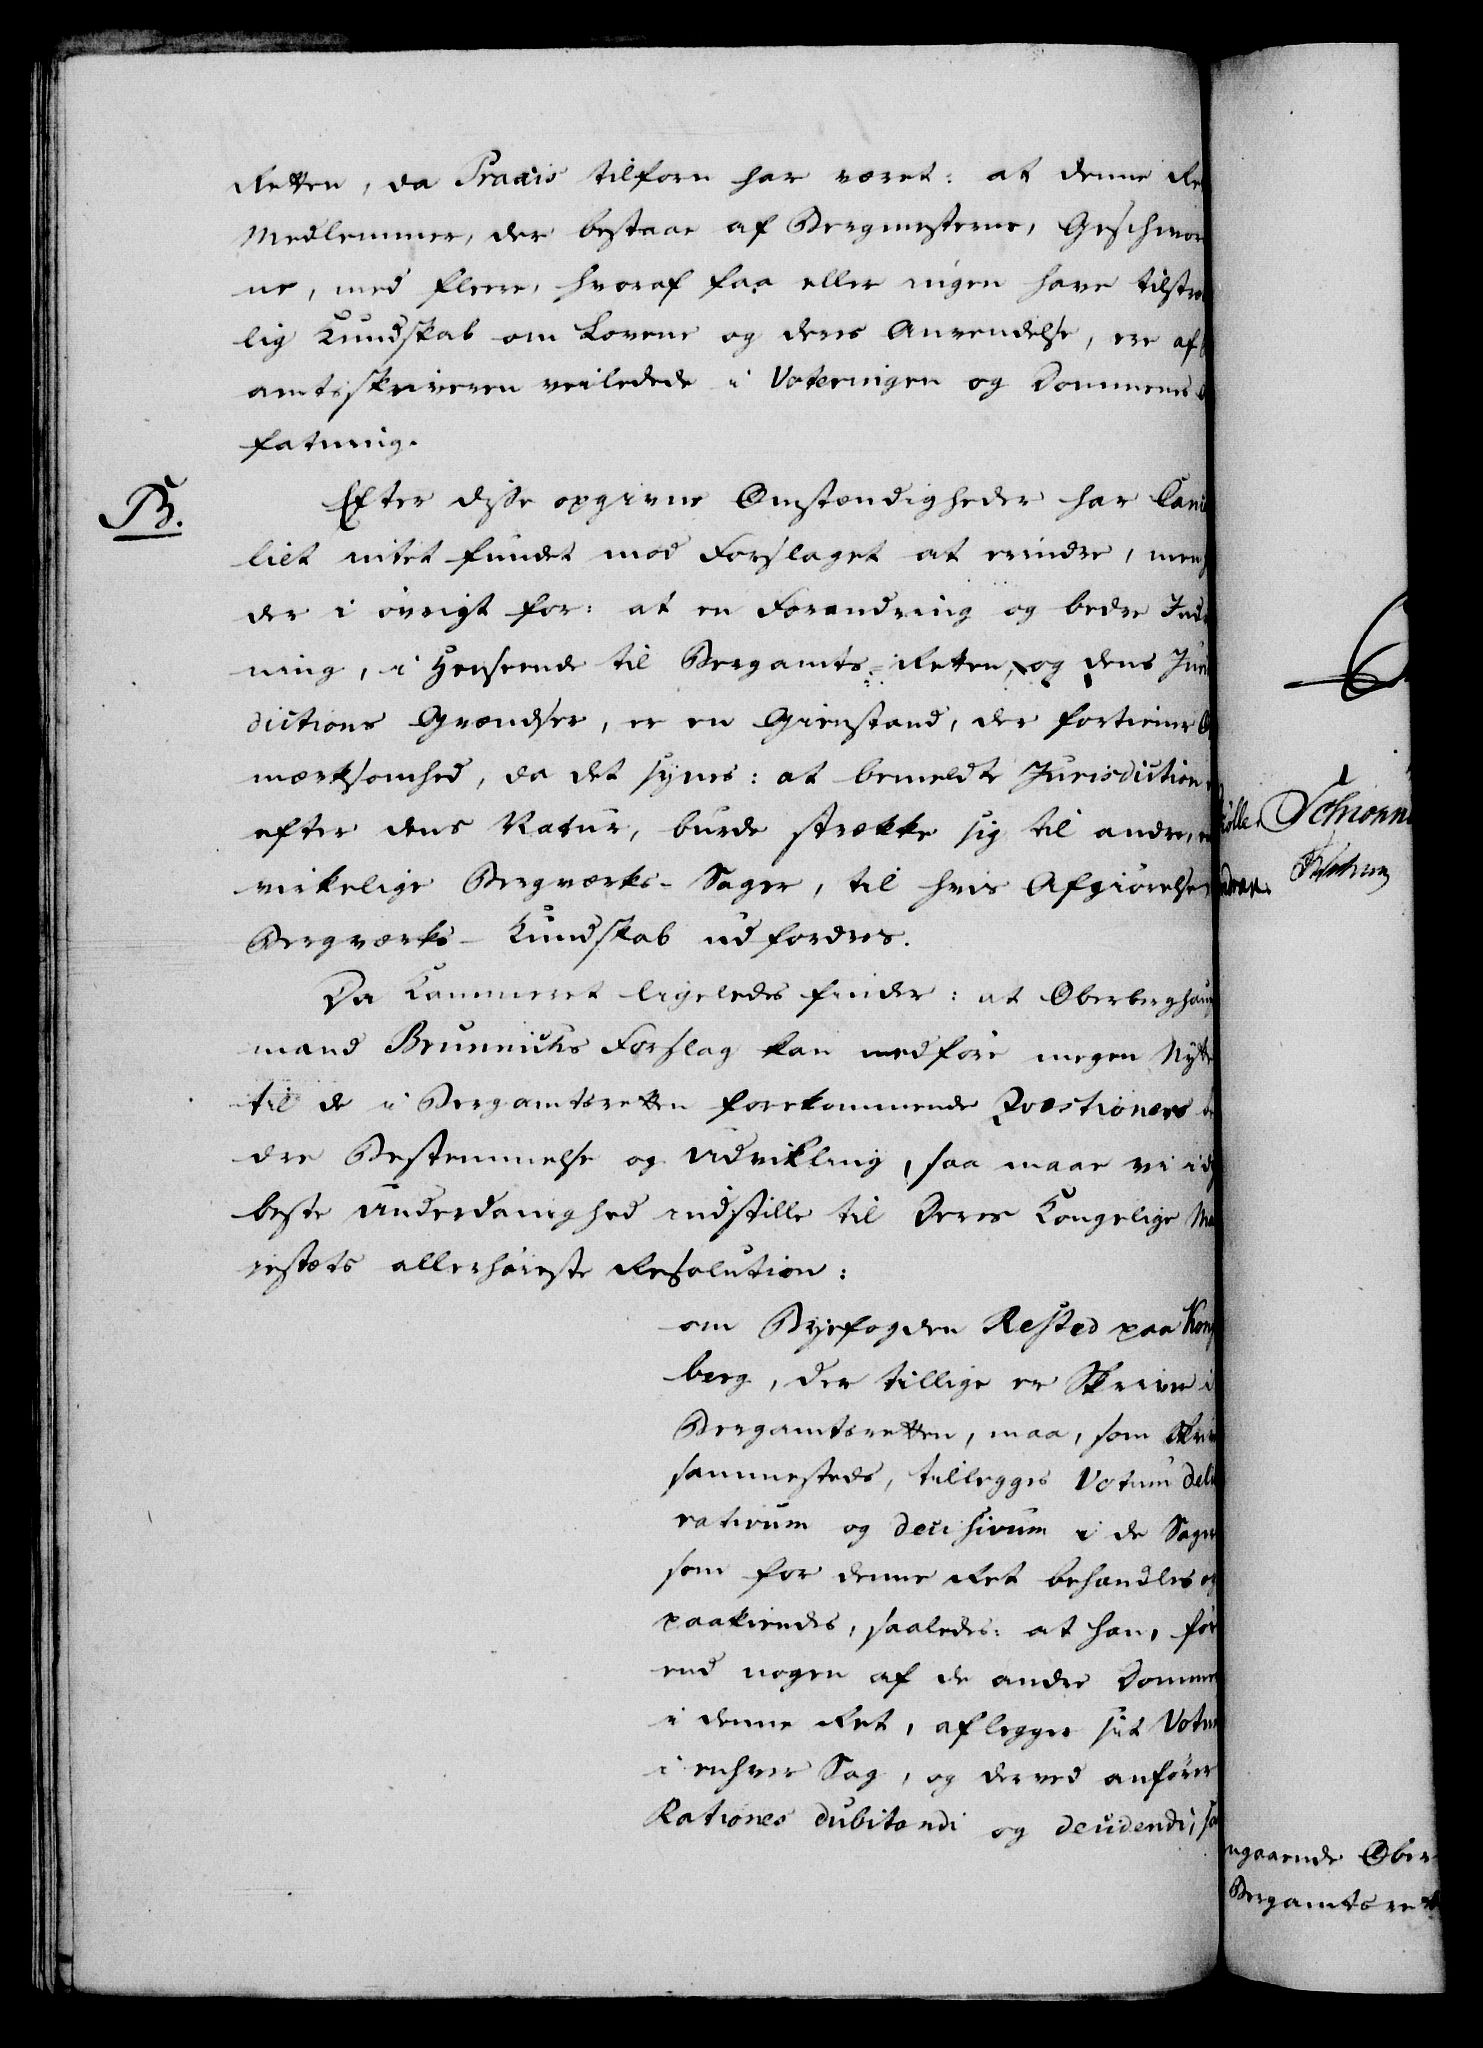 Retten, da Praxis tilforn har været: at denne Re
Medlemmer, der bestaae af Bergmesterne, Geschwor
ne, med flere, hvoraf faa eller ingen have tilstræ
lig Kundskab om Lovene og deres Anvendelse, ere af
amtsskriveren veiledede i Voteringen og Dommenes
fatning.
B.
Efter disse opgivne Omstændigheder har Canc
liet intet fundet mod Forslaget at erindre, men
der i övrigt for: at en Forandring og bedre Ind
ning, i Henseende til Bergamts-Retten, og dens Juris
dictions Grændser, er en Gienstand, der fortiener O
mærksomhed, da det synes: at bemeldte Jurisdiction
efter dens Natur, burde strække sig til andre,
virkelige Bergværks-Sager, til hvis Afgiörelse
Bergværks-Kundskab udfordres.
Da Kammeret ligeledes finder: at Oberberghaup
mand Brünnichs Forslag kan medföre megen Nytte
til de i Bergamtsretten forekommende Qvæstioners be
dre Bestemmelse og Udvikling, saa maae vi i dy
beste Underdanighed indstille til Deres Kongelige Ma
jestæts allerhöieste Resolution:
om Byefogden Rested paa Kong
berg, der tillige er Skriver i
Bergamtsretten, maa, som Skriv
sammesteds, tillegges Votum delib
rativum og decisivum i de Sager
som for denne Ret behandles og
paakiendes, saaledes: at han, för
end nogen af de andre Dommer
i denne Ret, aflegger sit Votum
i enhver Sag, og derved anförer
Rationes dubitandi og decidendi, sa
ngaaende Ober
Bergamtsrett